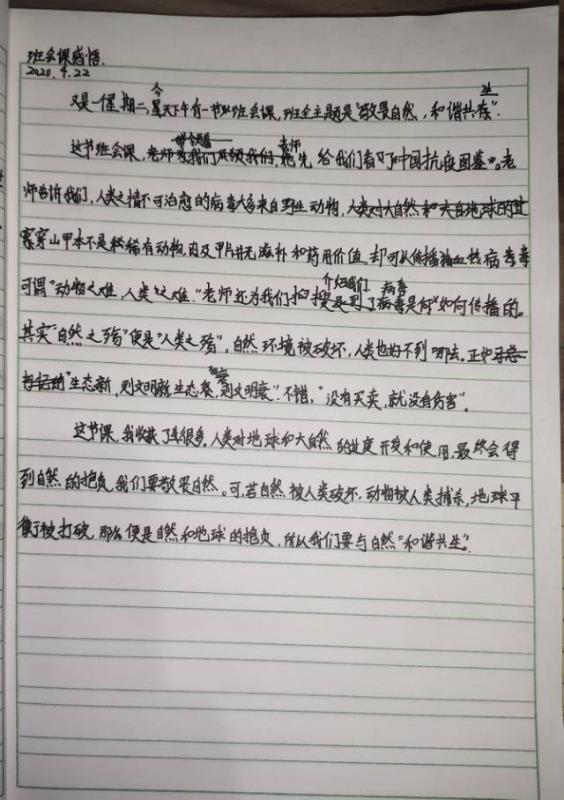 班会课感悟.
2020.4.22
又是一个星期二,今天下午有一节班会课,班会主题是"敬畏自然,和谐共生".
这节班会课,老师先给我们看了"中国抗疫图鉴"。老
师告诉我们,人类之情不可治愈的病毒大多来自野生动物,
穿山甲本不是稀有动物,肉及甲片并无滋补和药用价值,却可以传播出血热病毒
可谓"动物之难,人类之难."老师还为我们介绍病毒是如何传播的。
其实"自然之殇"便是"人类之殇",自然环境被破坏,人类也好不到哪去。正如
"生态新,则文明新,生态衰,则文明衰".不错,"没有买卖,就没有伤害".
这节课,我收获了很多,人类对地球和大自然的过度开发和使用,最终会得
到自然的抱负,我们要敬畏自然。可,若自然被人类破坏,动物被人类捕杀,地球平
衡被打破,那么便是自然和地球的抱负,所以我们要与自然"和谐共生".